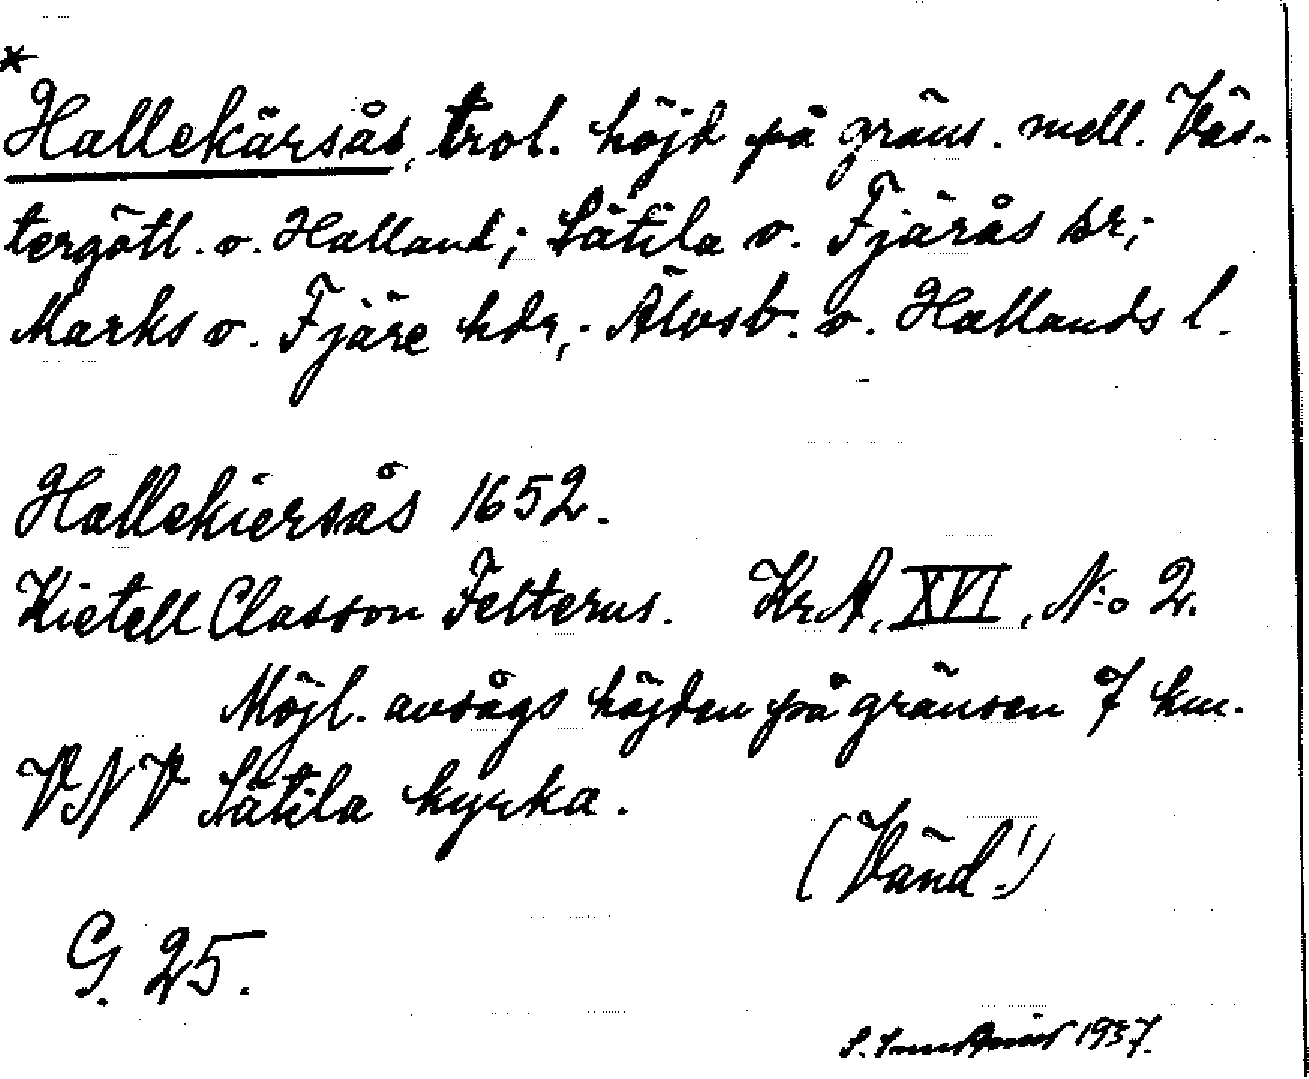 *
Hallekärsås, trol. höjd på gräns. mell. Väs-
tergötl. o. Halland; Sätila o. Fjärås sr;
Marks o. Fjäre hdr; Älvsb. o. Hallands l.
Hallekiersås 1652.
Kietell Classon Felterus. KrA, XVI, No 2.
Möjl. avsågs höjden på gränsen 7 km.
VNV Sätila kyrka.
(Vänd!)
G. 25.
1937.